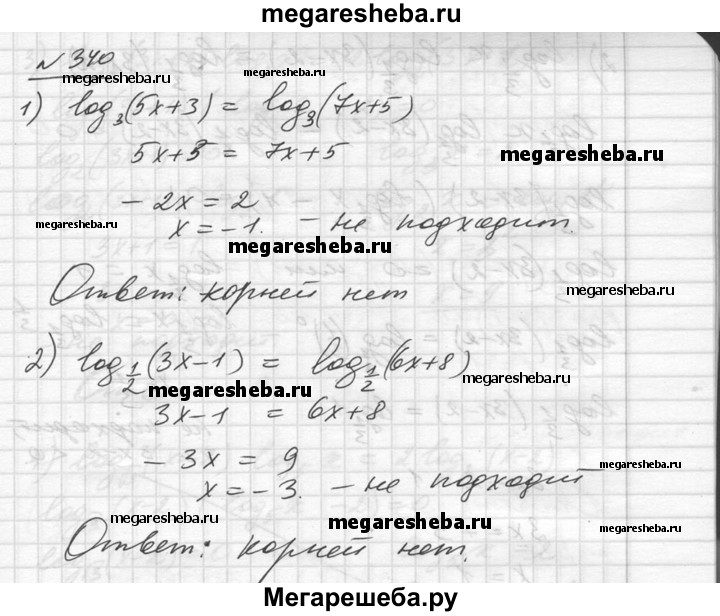 megaresheba.ru
№ 340
megaresheba.ru megaresheba.ru
1) log₃(5x+3) = log₃(7x+5)
5x+3 = 7x+5
megaresheba.ru
-2x = 2
megaresheba.ru
x = -1. - не подходит.
megaresheba.ru
Ответ: корней нет
megaresheba.ru
2) log₁/₂(3x-1) = log₁/₂(6x+8)
megaresheba.ru
megaresheba.ru
3x-1 = 6x+8
-3x = 9
megaresheba.ru
x = -3. - не подходит
megaresheba.ru megaresheba.ru megaresheba.ru
Ответ: корней нет.
Мегарешеба.ру